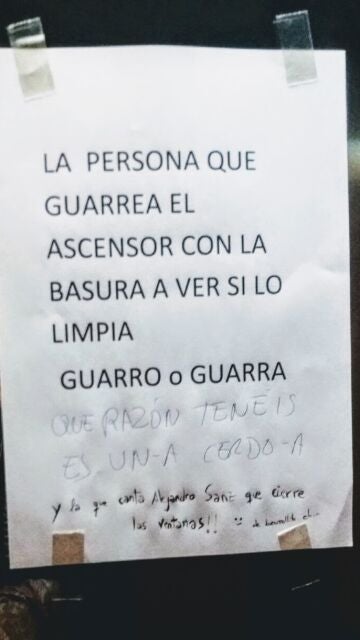 LA PERSONA QUE
GUARREA EL
ASCENSOR CON LA
BASURA A VER SI LO
LIMPIA
GUARRO o GUARRA
QUE RAZÓN TENEIS
ES UN-A CERDO-A
y la que canta Alejandro Sanz que cierre
las ventanas!!